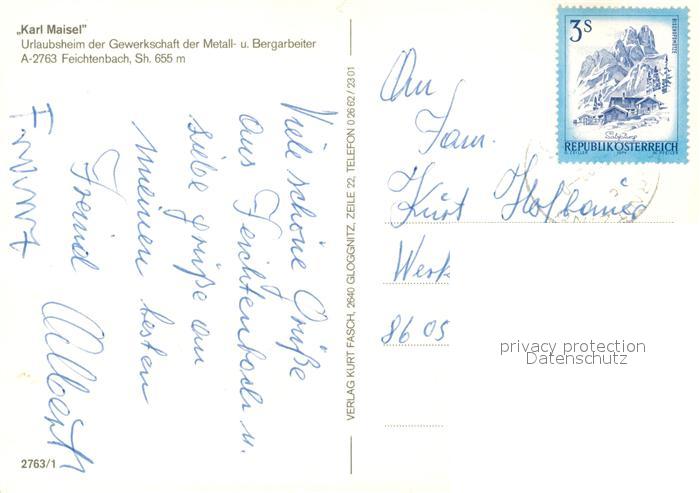 „Karl Maisel"
Urlaubsheim der Gewerkschaft der Metall- u. Bergarbeiter
A-2763 Feichtenbach, Sh. 655 m
Viele schöne Grüße
aus Feichtenbach u.
liebe grüße an
meinen besten
Freund
Adlbert
2763/1
VERLAG KURT FASCH, 2640 GLOGGNITZ, ZEILE 22, TELEFON 0 26 62 / 23 01
3 S
REPUBLIK ÖSTERREICH
An
Fam.
Kurt Hofbauer
Werk
8605
privacy protection
Datenschutz